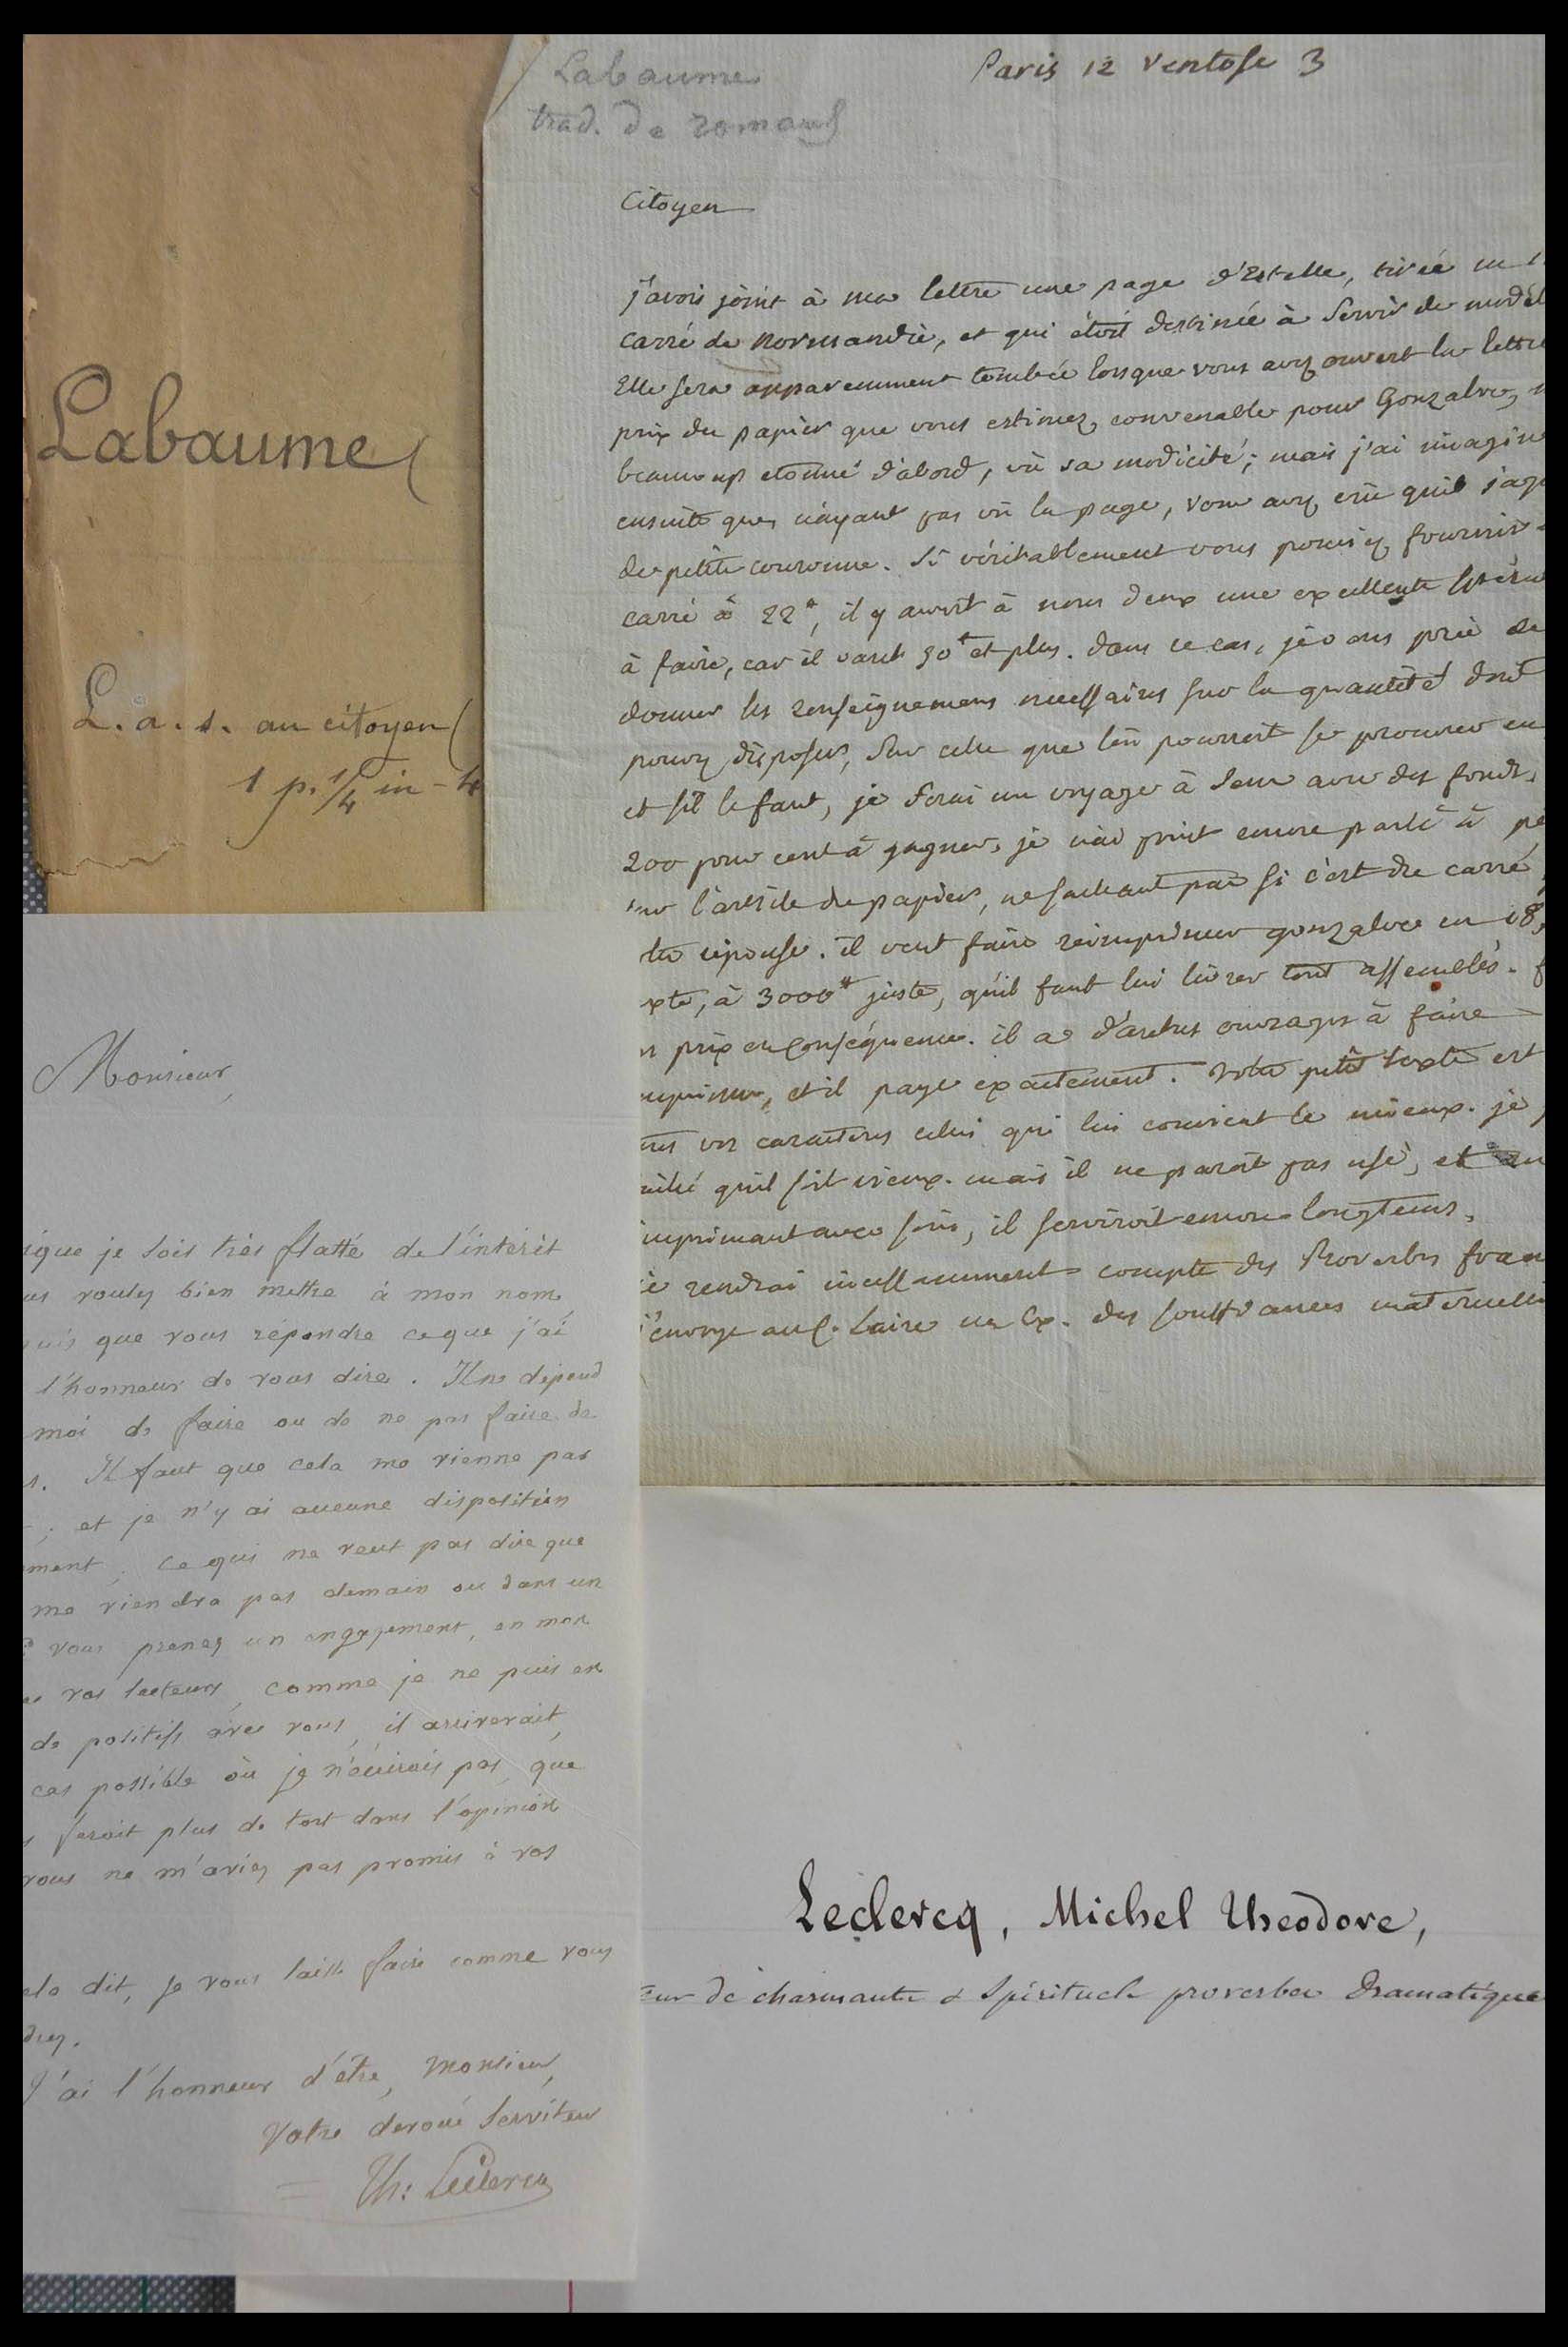 Labaume
L. a. s. au citoyen
1 p. 1/4 in-4
Labaume
trad. de romans
Paris 12 Ventose 3
Citoyen
j'avois joint à ma lettre une page d'Estelle, tirée
carré de Normandie, et qui étoit destinée à servir de modèl
Elle sera apparemment tombée lorsque vous avez ouvert la lettre
prix du papier que vous estimez convenable pour Gonzalve,
beaucoup etonné d'abord, vû sa modicité; mais j'ai imagin
ensuite que, n'ayant pas vû la page, vous avez crû qu'il s'ag
de petite couronne. Si véritablement vous pouviez fournir
carré à 22#, il y auroit à nous deux une excellente
à faire, car il vaut 50# et plus. dans ce cas, je vous prie de
donner les renseignemens nécessaires sur la quantité dont
pouvez disposer, sur celle que l'on pourroit se procurer en
et s'il le faut, je ferai un voyage à Sens avec des fonds.
200 pour cent à gagner, je n'ai point encore parlé à
l'article du papier, ne sachant pas si c'est du carré
réponse. il veut faire réimprimer gonzalve en 18,
xte, à 3000# juste, qu'il faut lui livrer tout assemblés.
prix en conséquence. il a d'autres ouvrages à faire
mprimer, et il paye exactement. Votre petit texte est
vos caractères celui qui lui convient le mieux. je
qu'il soit vieux. mais il ne paroît pas usé, et en
imprimant avec soin, il serviroit encore longtems.
rendrai incessamment compte des Proverbes fran
j'envoye au C. Laire un Ex. des souffrances maternelle
Monsieur,
ique je sois très flatté de l'intérêt
us voulez bien mettre à mon nom,
uis que vous répondre ce que j'ai
l'honneur de vous dire. Il ne dépend
moi de faire ou de ne pas faire de
s. Il faut que cela me vienne par
; et je n'y ai aucune disposition
ment; ce qui ne veut pas dire que
me viendra pas demain ou dans un
vous prenez un engagement, en mon
vos lecteurs, comme je ne puis en
de positifs avec vous, il arriverait,
cas possible où je n'écrirais pas, que
s ferait plus de tort dans l'opinion
vous ne m'aviez pas promis à vos
ela dit, je vous laisse faire comme vous
drez.
J'ai l'honneur d'être, Monsieur,
Votre dévoué Serviteur
Th: Leclercq
Leclercq, Michel Théodore,
eur de charmants & spirituels proverbes Dramatique